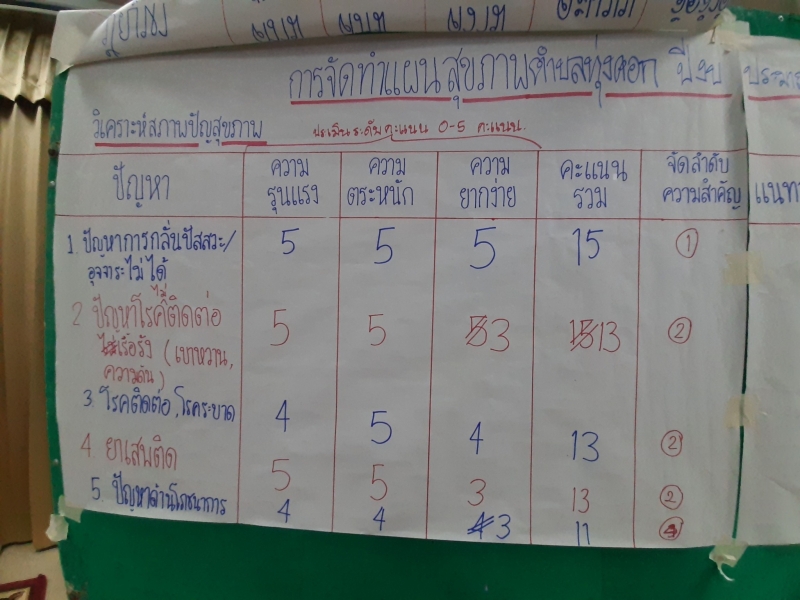 บาท บาท
การจัดทำแผนสุขภาพตำบลทุ่งคอก ปีงบ
วิเคราะห์สภาพปัญสุขภาพ
ประเมินระดับคะแนน 0-5 คะแนน
ปัญหา ความรุนแรง ความตระหนัก ความยากง่าย คะแนนรวม จัดลำดับความสำคัญ
1. ปัญหาการกลั่นปัสสวะ/ 5 5 5 15 1
อุจจาระไม่ได้
2 ปัญหาโรคไม่ติดต่อ 5 5 3 13 2
เรื้อรัง (เบาหวาน,
ความดัน)
3. โรคติดต่อ, โรคระบาด 4 5 4 13 2
4. ยาเสพติด 5 5 3 13 2
5. ปัญหาด้านโภชนาการ 4 4 3 11 4
แนท